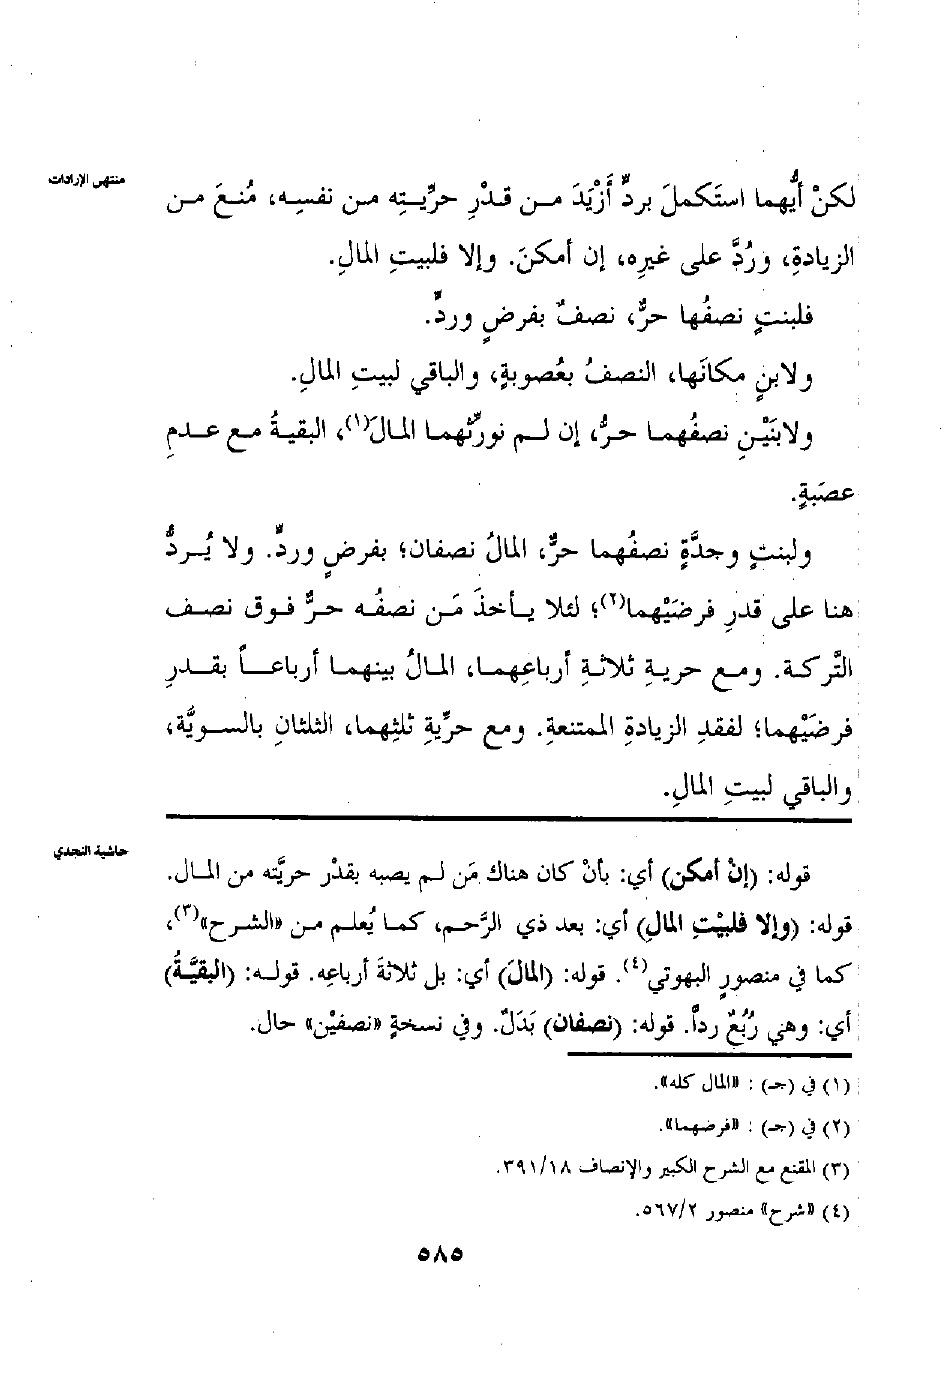 منتهى الإرادات
لكنْ أيُّهما استَكملَ بردٍّ أَزْيَدَ من قدْرِ حريَّتِه من نفسِه، مُنعَ من
الزيادةِ، ورُدَّ على غيرِه، إن أمكنَ. وإلا فلبيتِ المالِ.
فلبنتٍ نصفُها حرٌّ، نصفٌ بفرضٍ وردٍّ.
ولابنٍ مكانَها، النصفُ بعُصوبةٍ، والباقي لبيتِ المالِ.
ولابنَيْنِ نصفُهما حرٌّ، إن لم نورِّثْهما المالَ(١)، البقيةُ مع عدمِ
عصَبةٍ.
ولبنتٍ وجدَّةٍ نصفُهما حرٌّ، المالُ نصفان؛ بفرضٍ وردٍّ. ولا يُردُّ
هنا على قدرِ فرضَيْهما(٢)؛ لئلا يأخذَ مَن نصفُه حرٌّ فوق نصف
التَّركة. ومع حريةِ ثلاثةِ أرباعِهما، المالُ بينهما أرباعاً بقدرِ
فرضَيْهما؛ لفقدِ الزيادةِ الممتنعةِ. ومع حرِّيةِ ثلثِهما، الثلثانِ بالسويَّة،
والباقي لبيتِ المالِ.
حاشية النجدي
قوله: (إنْ أمكن) أي: بأنْ كان هناك مَن لم يصبه بقدْر حريَّته من المال.
قوله: (وإلا فلبيْتِ المالِ) أي: بعد ذي الرَّحم، كما يُعلم من «الشرح»(٣)،
كما في منصورٍ البهوتي(٤). قوله: (المالَ) أي: بل ثلاثةَ أرباعِه. قوله: (البقيَّةُ)
أي: وهي رُبُعٌ رداً. قوله: (نصفان) بَدَلٌ. وفي نسخةٍ «نصفيْن» حال.
(١) في (جـ) : «المال كله».
(٢) في (جـ) : «فرضهما».
(٣) المقنع مع الشرح الكبير والإنصاف ٣٩١/١٨.
(٤) «شرح» منصور ٥٦٧/٢.
٥٨٥